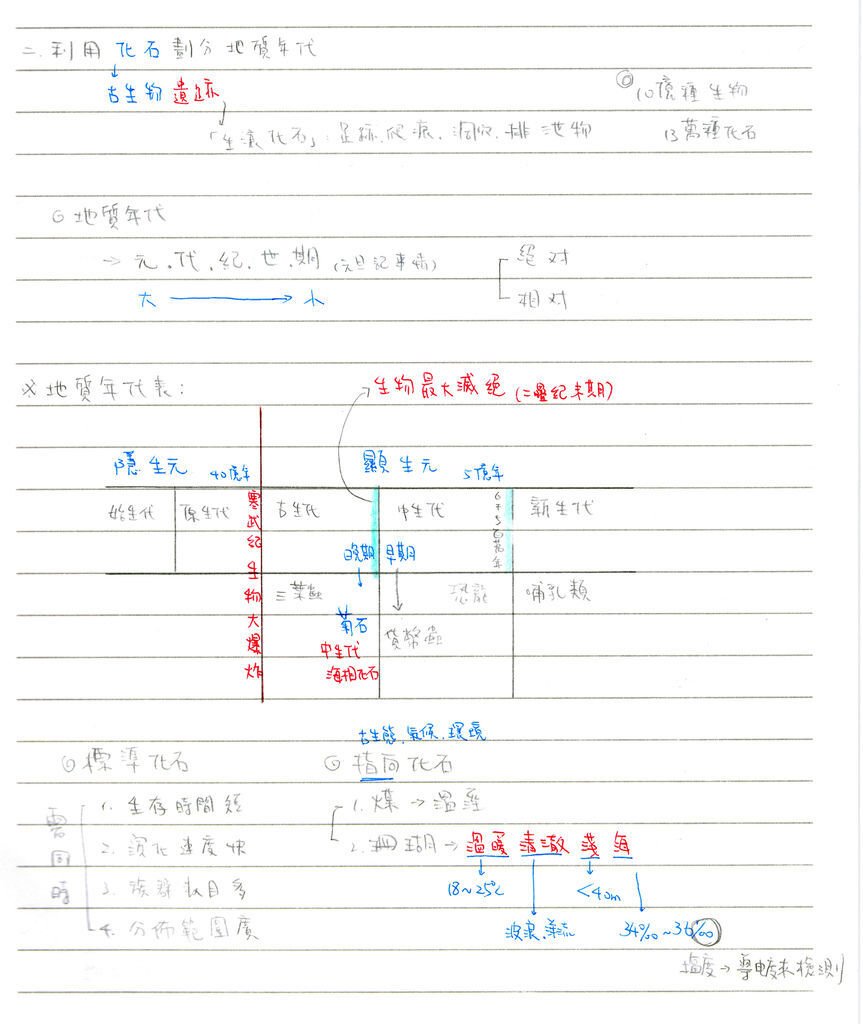 二. 利用 化石 劃分 地質年代
古生物 遺跡
◎ 10億種生物
「生痕化石」: 足跡、爬痕、洞穴、排泄物
13萬種化石
◎ 地質年代
→ 元、代、紀、世、期 (元旦記事情)
絕対
大 → 小
相対
※ 地質年代表:
生物最大滅絕 (二疊紀末期)
隱生元 40億年
顯生元 5億年
始生代 原生代
寒武紀生物大爆炸
古生代
中生代
6千5百萬年
新生代
晚期 早期
三葉蟲
恐龍
哺乳類
菊石
貨幣蟲
中生代
海相化石
古生態、氣候、環境
◎ 標準化石
◎ 指向化石
需同時
1. 生存時間短
2. 演化速度快
3. 族群數目多
4. 分佈範圍廣
1. 煤 → 溫溼
2. 珊瑚 → 溫暖 清澈 淺 海
18~25℃
<40m
波浪、
34‰~36‰
鹽度 → 導電度來檢測